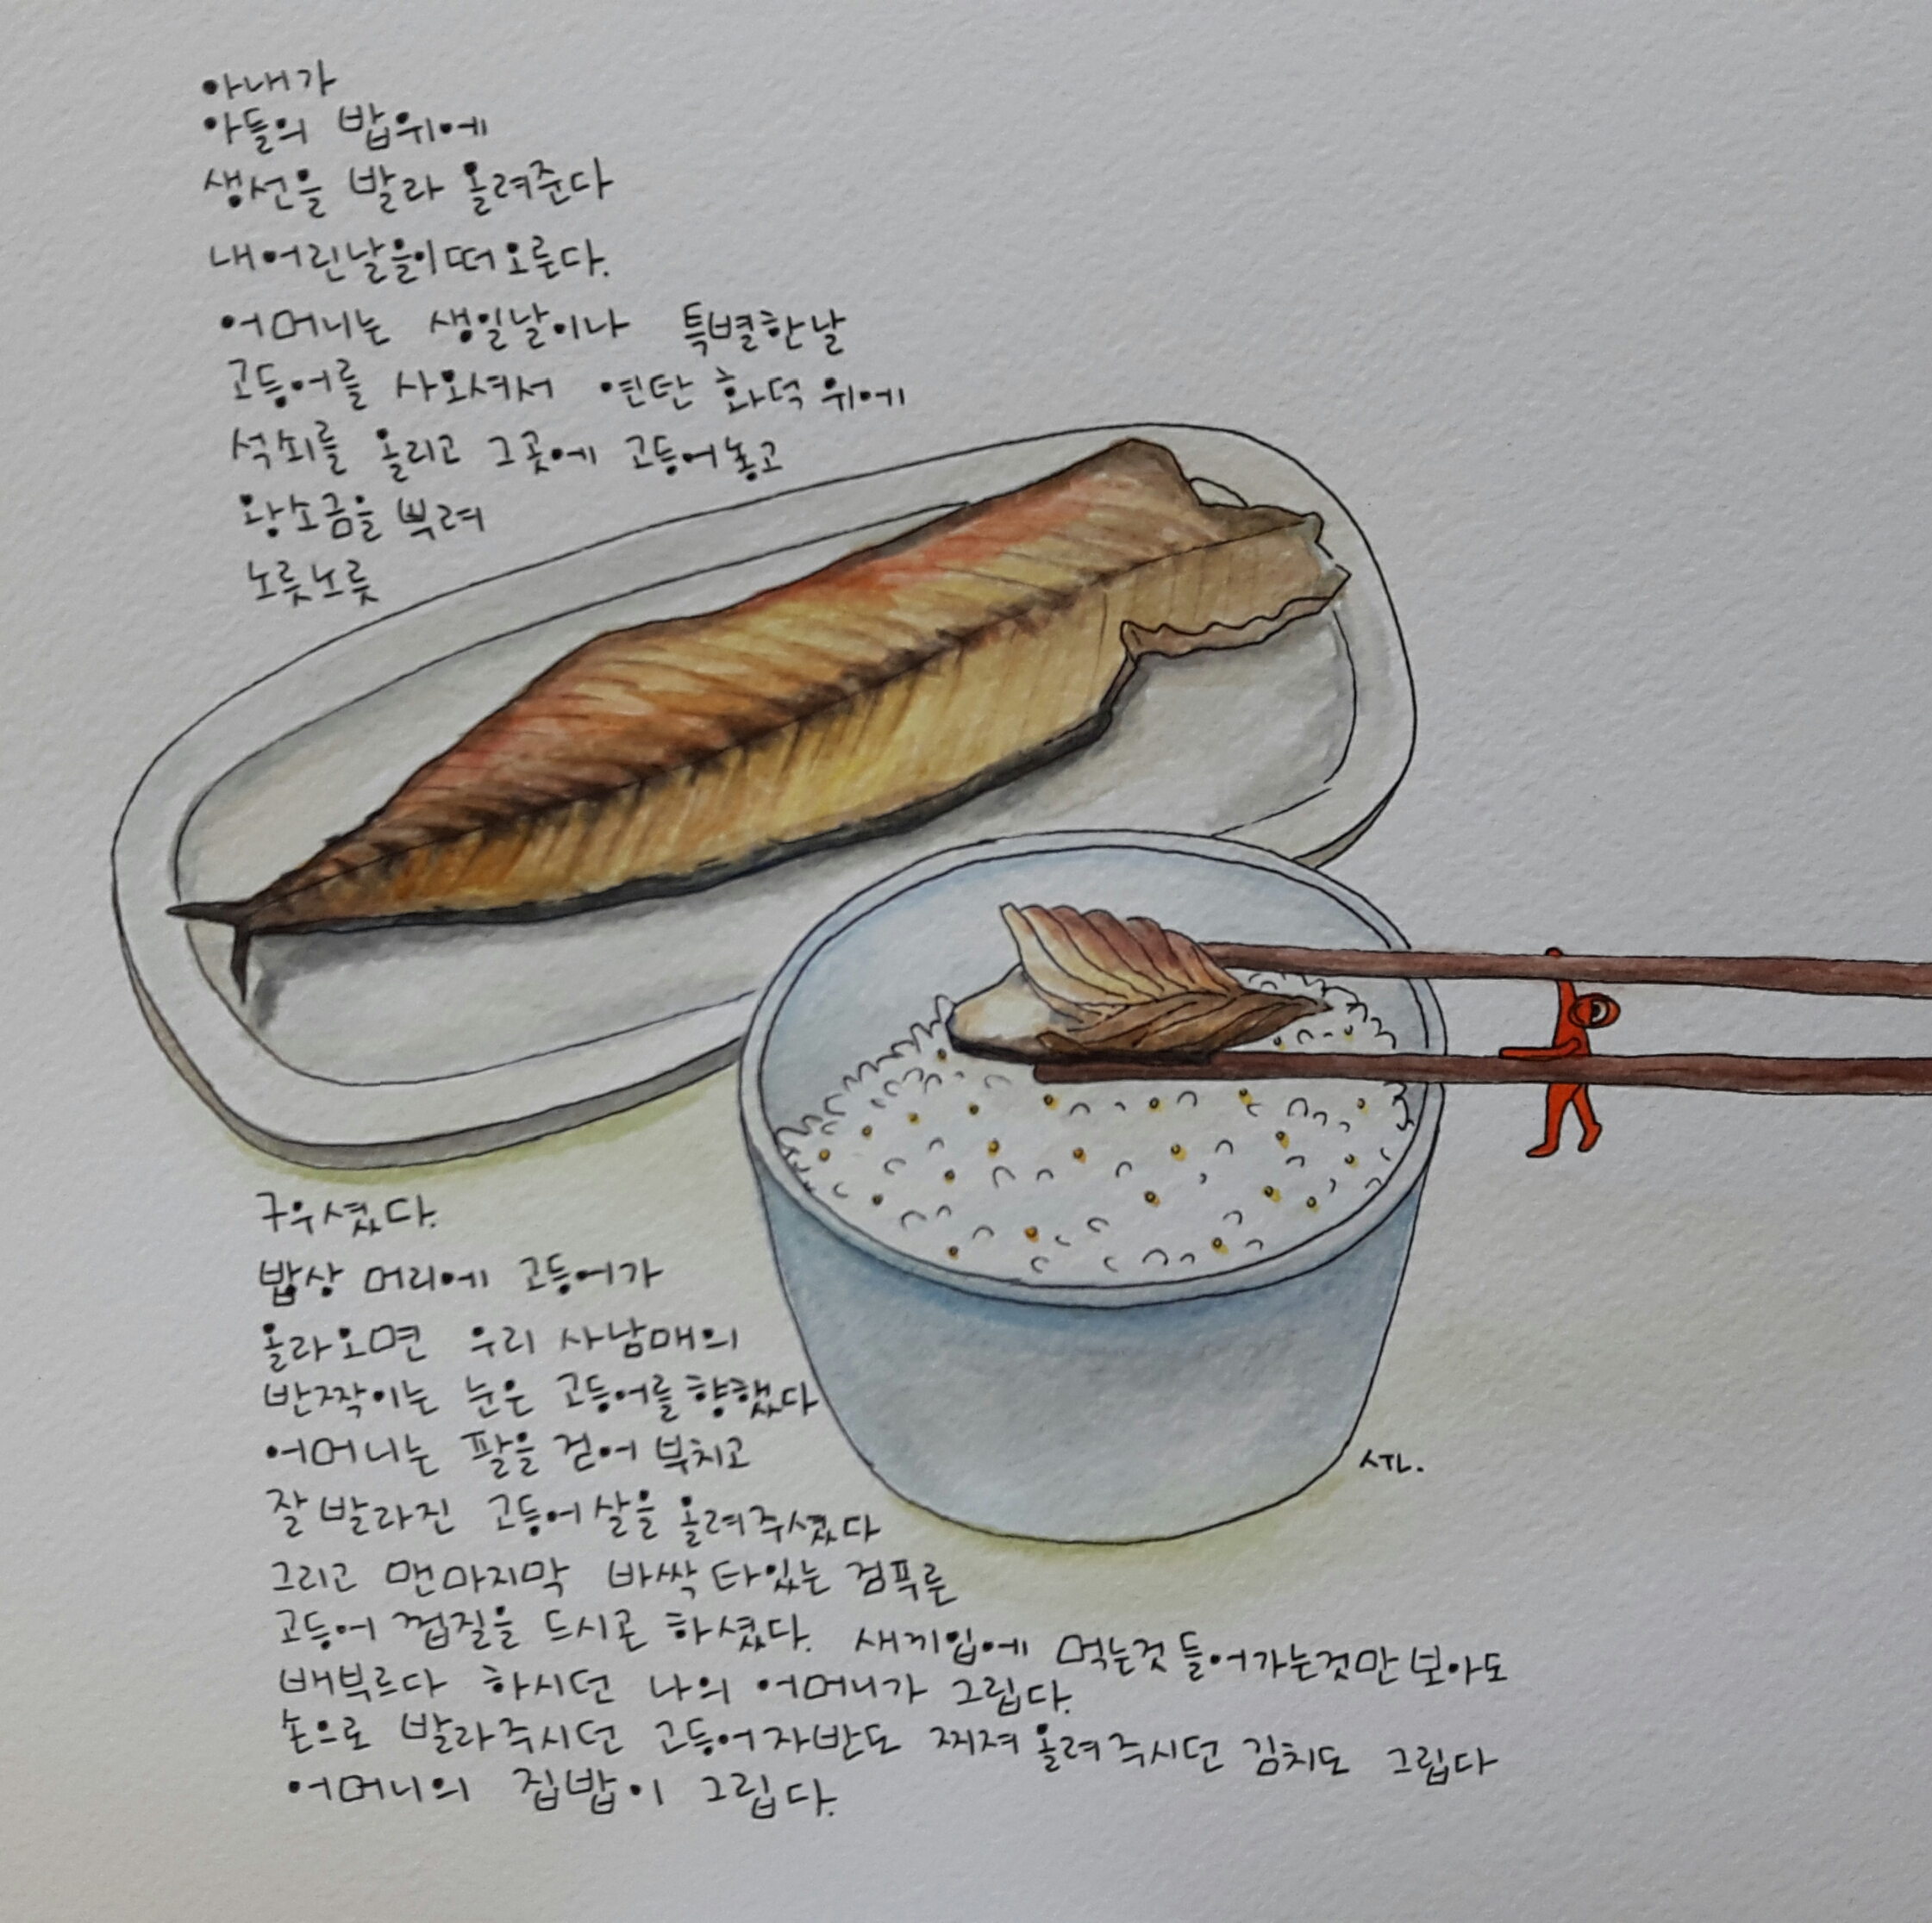 아내가
아들의 밥위에
생선을 발라 올려준다
내어린날을이떠오른다.
어머니는 생일날이나 특별한날
고등어를 사오셔서 연탄 화덕 위에
석쇠를 올리고 그곳에 고등어놓고
왕소금을 뿌려
노릇노릇
구우셨다.
밥상 머리에 고등어가
올라오면 우리 사남매의
반짝이는 눈은 고등어를향했다
어머니는 팔을 걷어 부치고
잘발라진 고등어살을 올려주셨다
그리고 맨마지막 바싹타있는 검푸른
고등어 껍질을 드시곤 하셨다. 새끼입에 먹는것들어가는것만보아도
배부르다 하시던 나의 어머니가 그립다.
손으로 발라주시던 고등어자반도 찌져올려주시던 김치도 그립다
어머니의 집밥이 그립다.